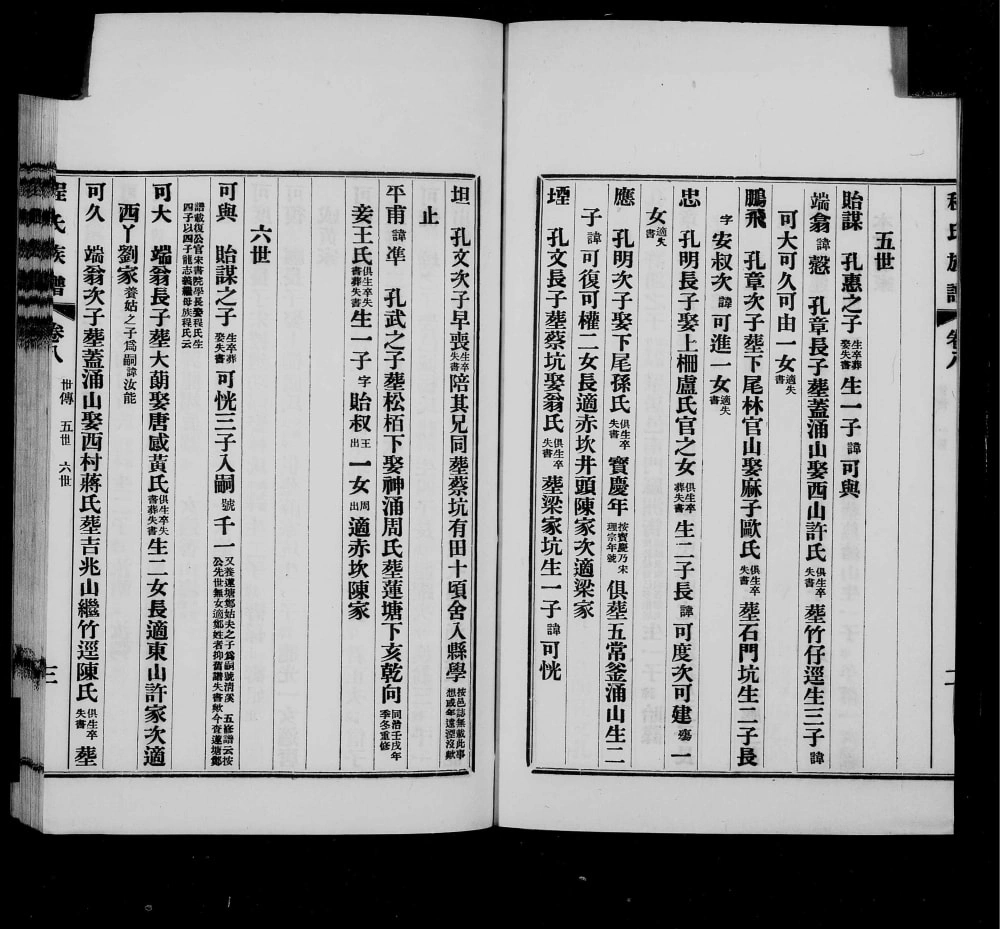 程氏族譜 卷八 二
五世
貽謀 孔惠之子 生卒葬娶失書 生一子 諱 可與
端翁 諱 愨 孔章長子葬蓋涌山娶西山許氏 俱生卒失書 葬竹仔逕生三子 諱
可大可久可由一女 適失書
鵬飛 孔章次子葬下尾林官山娶麻子歐氏 俱生卒失書 葬石門坑生二子長
字 安叔次 諱 可進一女 適失書
忠 孔明長子娶上柵盧氏官之女 俱生卒葬失書 生二子長 諱 可度次可建 殤 一
女 適失書
應 孔明次子娶下尾孫氏 俱生卒失書 寶慶年 按寶慶乃宋理宗年號 俱葬五常釜涌山生二
子 諱 可復可權二女長適赤坎井頭陳家次適梁家
堙 孔文長子葬蔡坑娶翁氏 俱生卒失書 葬梁家坑生一子 諱 可恍
坦 孔文次子早喪 生卒失書 陪其兄同葬蔡坑有田十頃舍入縣學 按邑誌無載此事想或年遠湮沒歟
止
平甫 諱 準 孔武之子葬松栢下娶神涌周氏葬蓮塘下亥乾向 同治壬戌年季冬重修
妾王氏 俱生卒失書葬失書 生一子 字 貽叔 王出 一女 周出 適赤坎陳家
六世
可與 貽謀之子 生卒葬娶失書 可恍三子入嗣 號 千一 又養蓮塘鄭姑夫之子爲嗣號清溪 五修譜云按公先世無女適鄭姓者抑舊譜失書歟今查蓮塘鄭
譜載復公官宋書院學長娶程氏生四子以四子龍志義繼母族程氏云
可大 端翁長子葬大蓢娶唐㘕黃氏 俱生卒失書葬失書 生二女長適東山許家次適
西丫劉家 養姑之子爲嗣諱汝能
可久 端翁次子葬蓋涌山娶西村蔣氏葬吉兆山繼竹逕陳氏 俱生卒失書 葬
程氏族譜 卷八 世傳 五世 六世 三